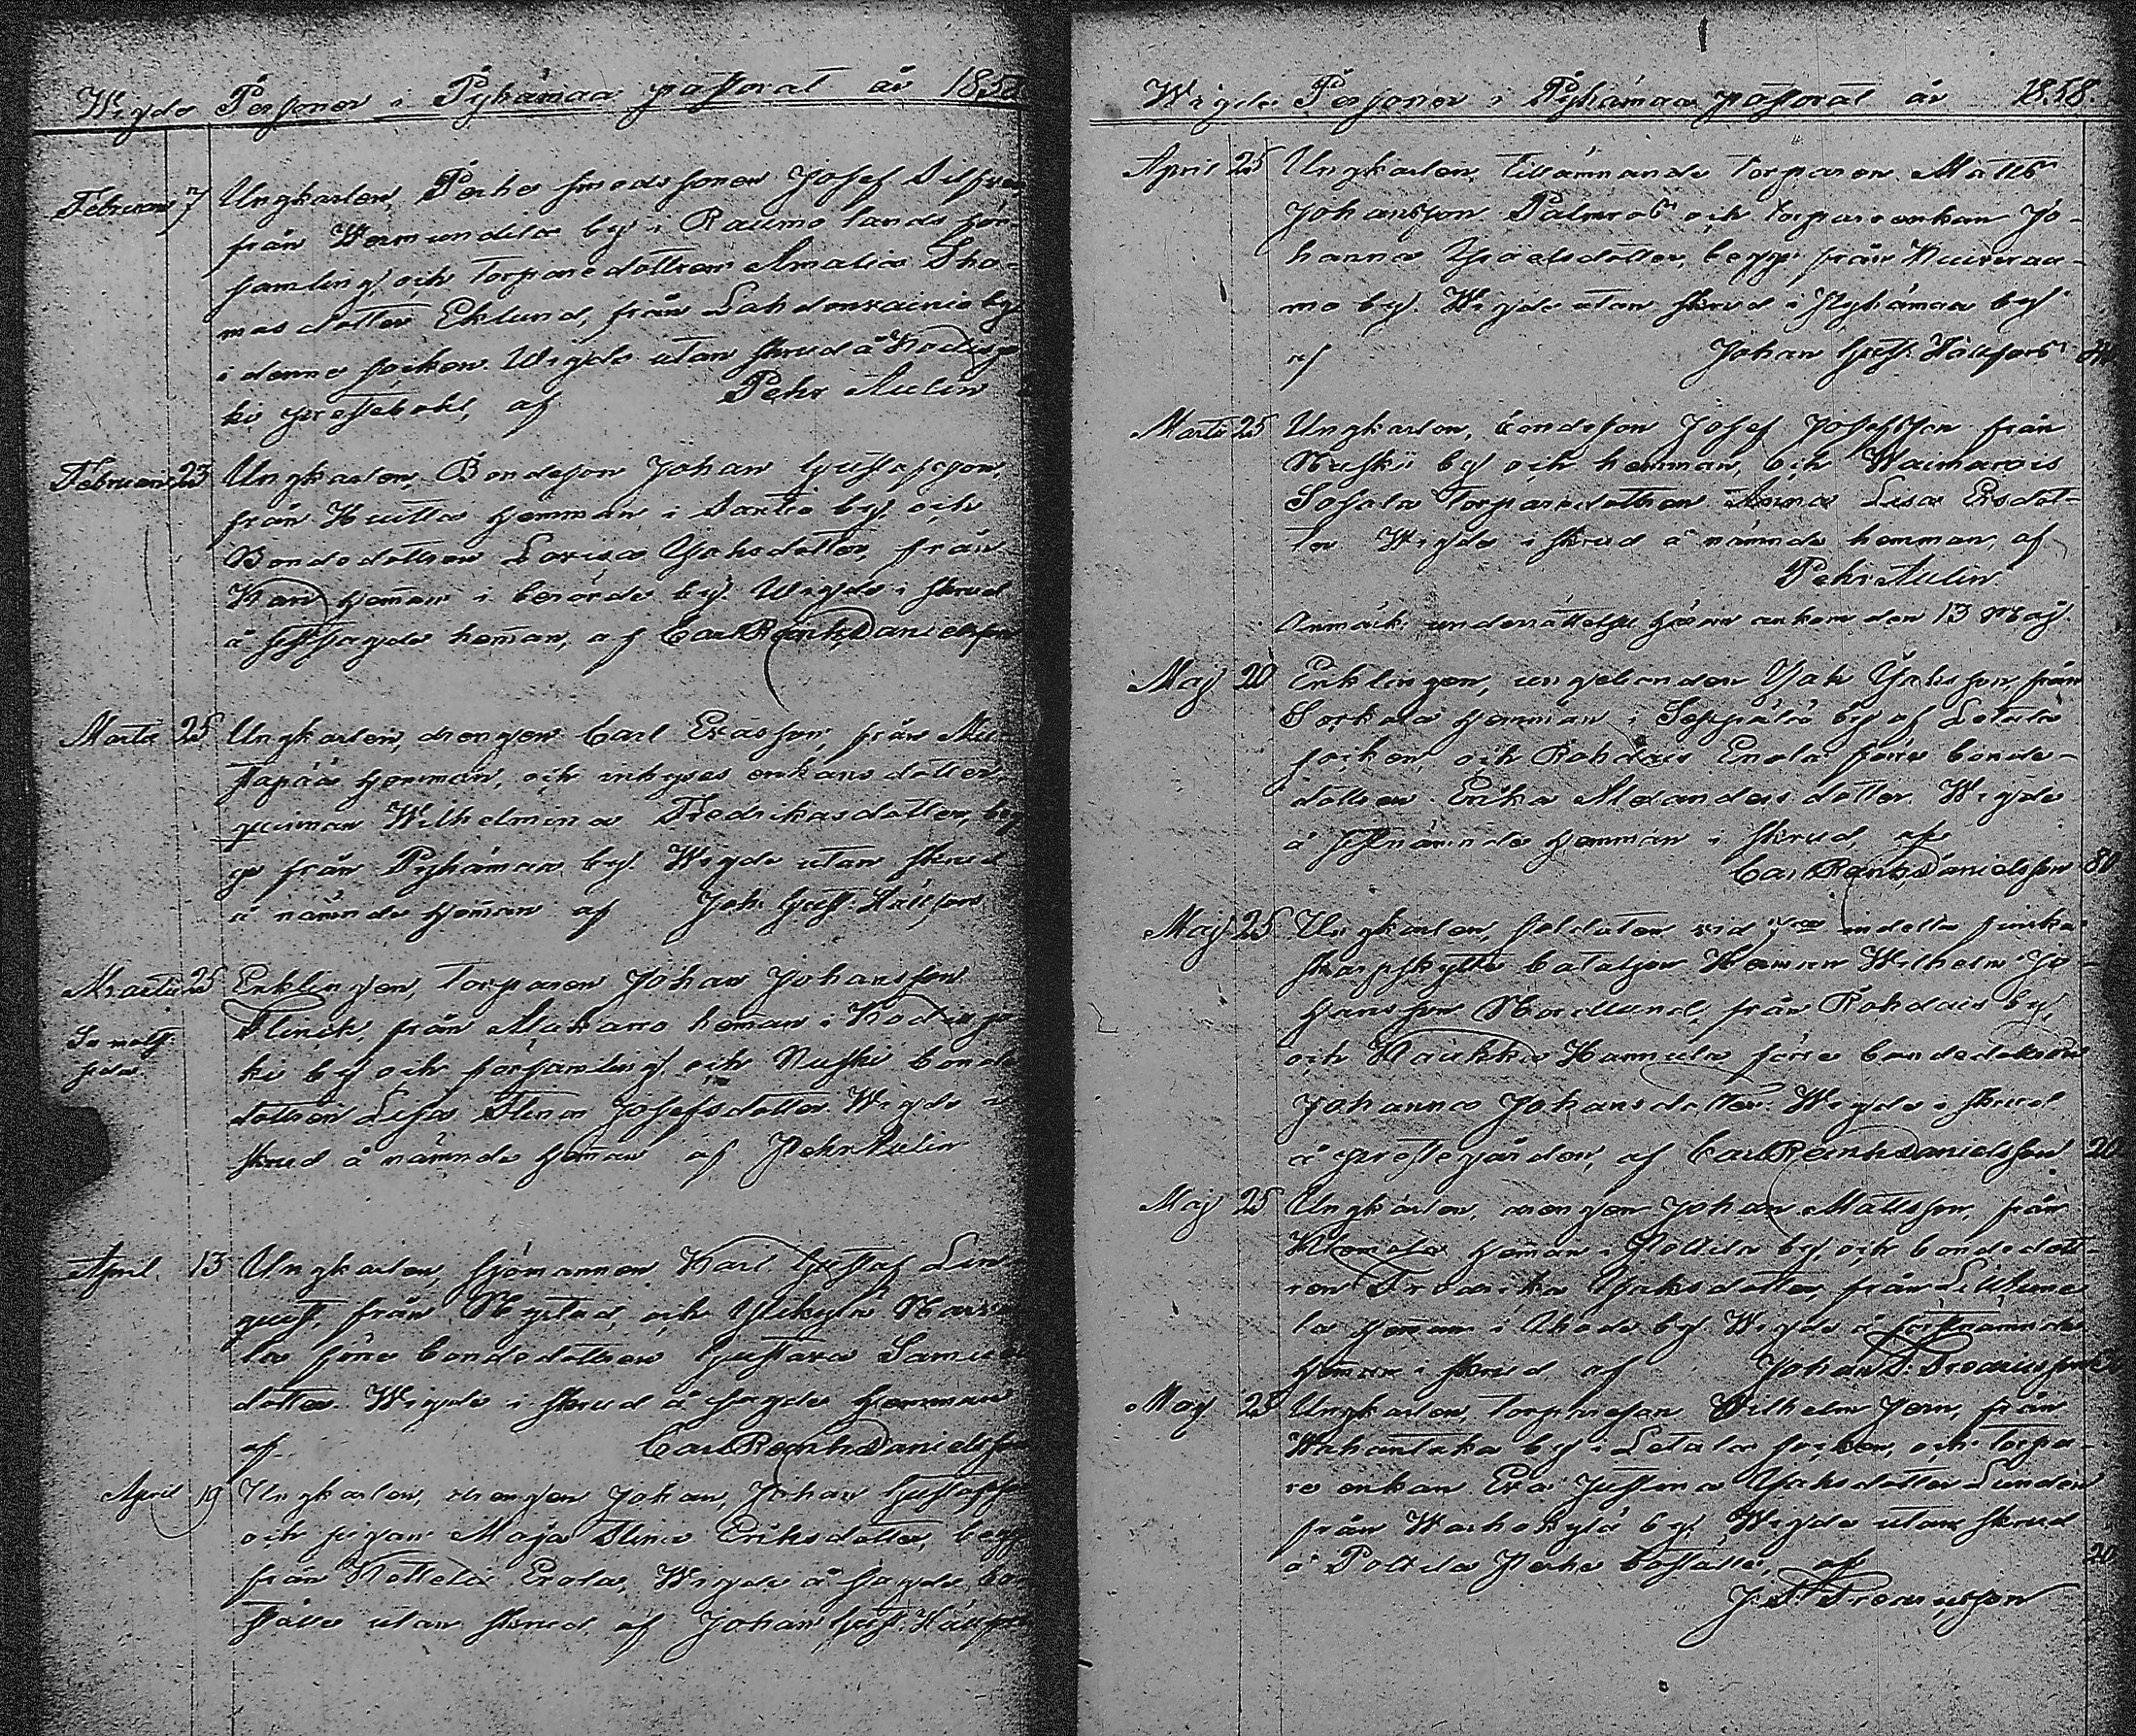 Wigde Personer i Pyhämaa pastorat år 185
Februari 7 Ungkarlen, Perho smedssonen Josef
från Wermundila by i Raumo lands för-
samling, och torparedottren Amalia Tho-
mas dotter Eklund, från Lahdenvainio by
i denna socken. Wigde utan skrud å Kodisjo
ki prestebohl, af Pehr Aulin
Februari 23 Ungkarlen, Bondeson Johan Gustafsson,
från Huitta hemman i Santio by och
Bondedottren Lovisa Jaksdotter, från
Kari hemman i berörde by. Wigde i skrud
å sistsagde hemman, af Carl Reinh. Danielsson
Martii 25 Ungkarlen, drengen Carl Eriasson, från Mu-
stapää hemman, och inhyses enkans dotter,
quinnan Wilhelmina Fredrikasdotter, beg
ge från Pyhämaa by. Wigde utan skrud
å nämnde hemman af Joh. Gust. Hällfors
Martii 25 Enklingen, torparen Johan Johansson
Flinck, från hemman i Kodisjo
ki by och församling och Nuhki bonde
dottren Lisa Stina Josefsdotter. Wigde i
skrud å nämnde hemman af Pehr Aulin
April 13 Ungkarlen, sjömannen Karl Gustaf Lin
quist, från Nystad, och Ylikylä
la före bondedottren Gustava Samuels
dotter. Wigde i skrud å sagde hemman
af Carl Reinh. Danielsson
April 19 Ungkarlen, drengen Johan, Johan Gustafsson
och pigan Maja Stina Eriksdotter, begge
från Erola, Wigde å sagde bo
ställe utan skrud af Johan Gust. Hällfors
Wigde Personer i Pyhämaa pastorat år 1858.
April 25 Ungkarlen, tillämnande torparen Matts
Johansson Palmros och torpareenkan Jo-
hanna Israelsdotter, begge från
mo by. Wigde utan skrud i Pyhämaa by
af Johan Gust. Hällfors
Martii 25 Ungkarlen, bondeson Josef Josefsson från
Nuhki by och hemman, och Waimarois
Sohala torparedottren Anna Lisa Ersdot-
ter Wigde i skrud å nämnde hemman, af
Pehr Aulin
Anmärk. underrättelse härom ankom den 13 Maj.
Maj 20 Enklingen, ungbonden Jak Jaksson, från
hemman i Seppälä by af Letala
socken och Rohdais Erola före bonde-
dottren Erika Alexandersdotter. Wigde
å sistnämnde hemman i skrud, af
Carl Reinh. Danielsson 80
Maj 25 Ungkarlen, soldaten vid indelta finska
skarpskytte bataljon Herman Wilhelm Jo-
hansson Nordlund, från Rohdais by,
och Haukka Hannula förre bondedottren
Johanna Johansdotter. Wigde i skrud
å prestegården, af Carl Reinh. Danielsson 20
Maj 25 Ungkarlen, drengen Johan Mattsson, från
hemman i Polttila by och bondedott-
ren Fredrika Jaksdotter, från
la hemman i Ihode by Wigde å sistnämnde
hemman i skrud af Johan
Maj 25 Ungkarlen, torpareson Wilhelm Jern, från
Wahantaka by i Letala socken, och torpa-
re enkan Eva Justina Jaksdotter Lundén
från Warhokylä by. Wigde utan skrud
å Polttila Perho boställe, af 20